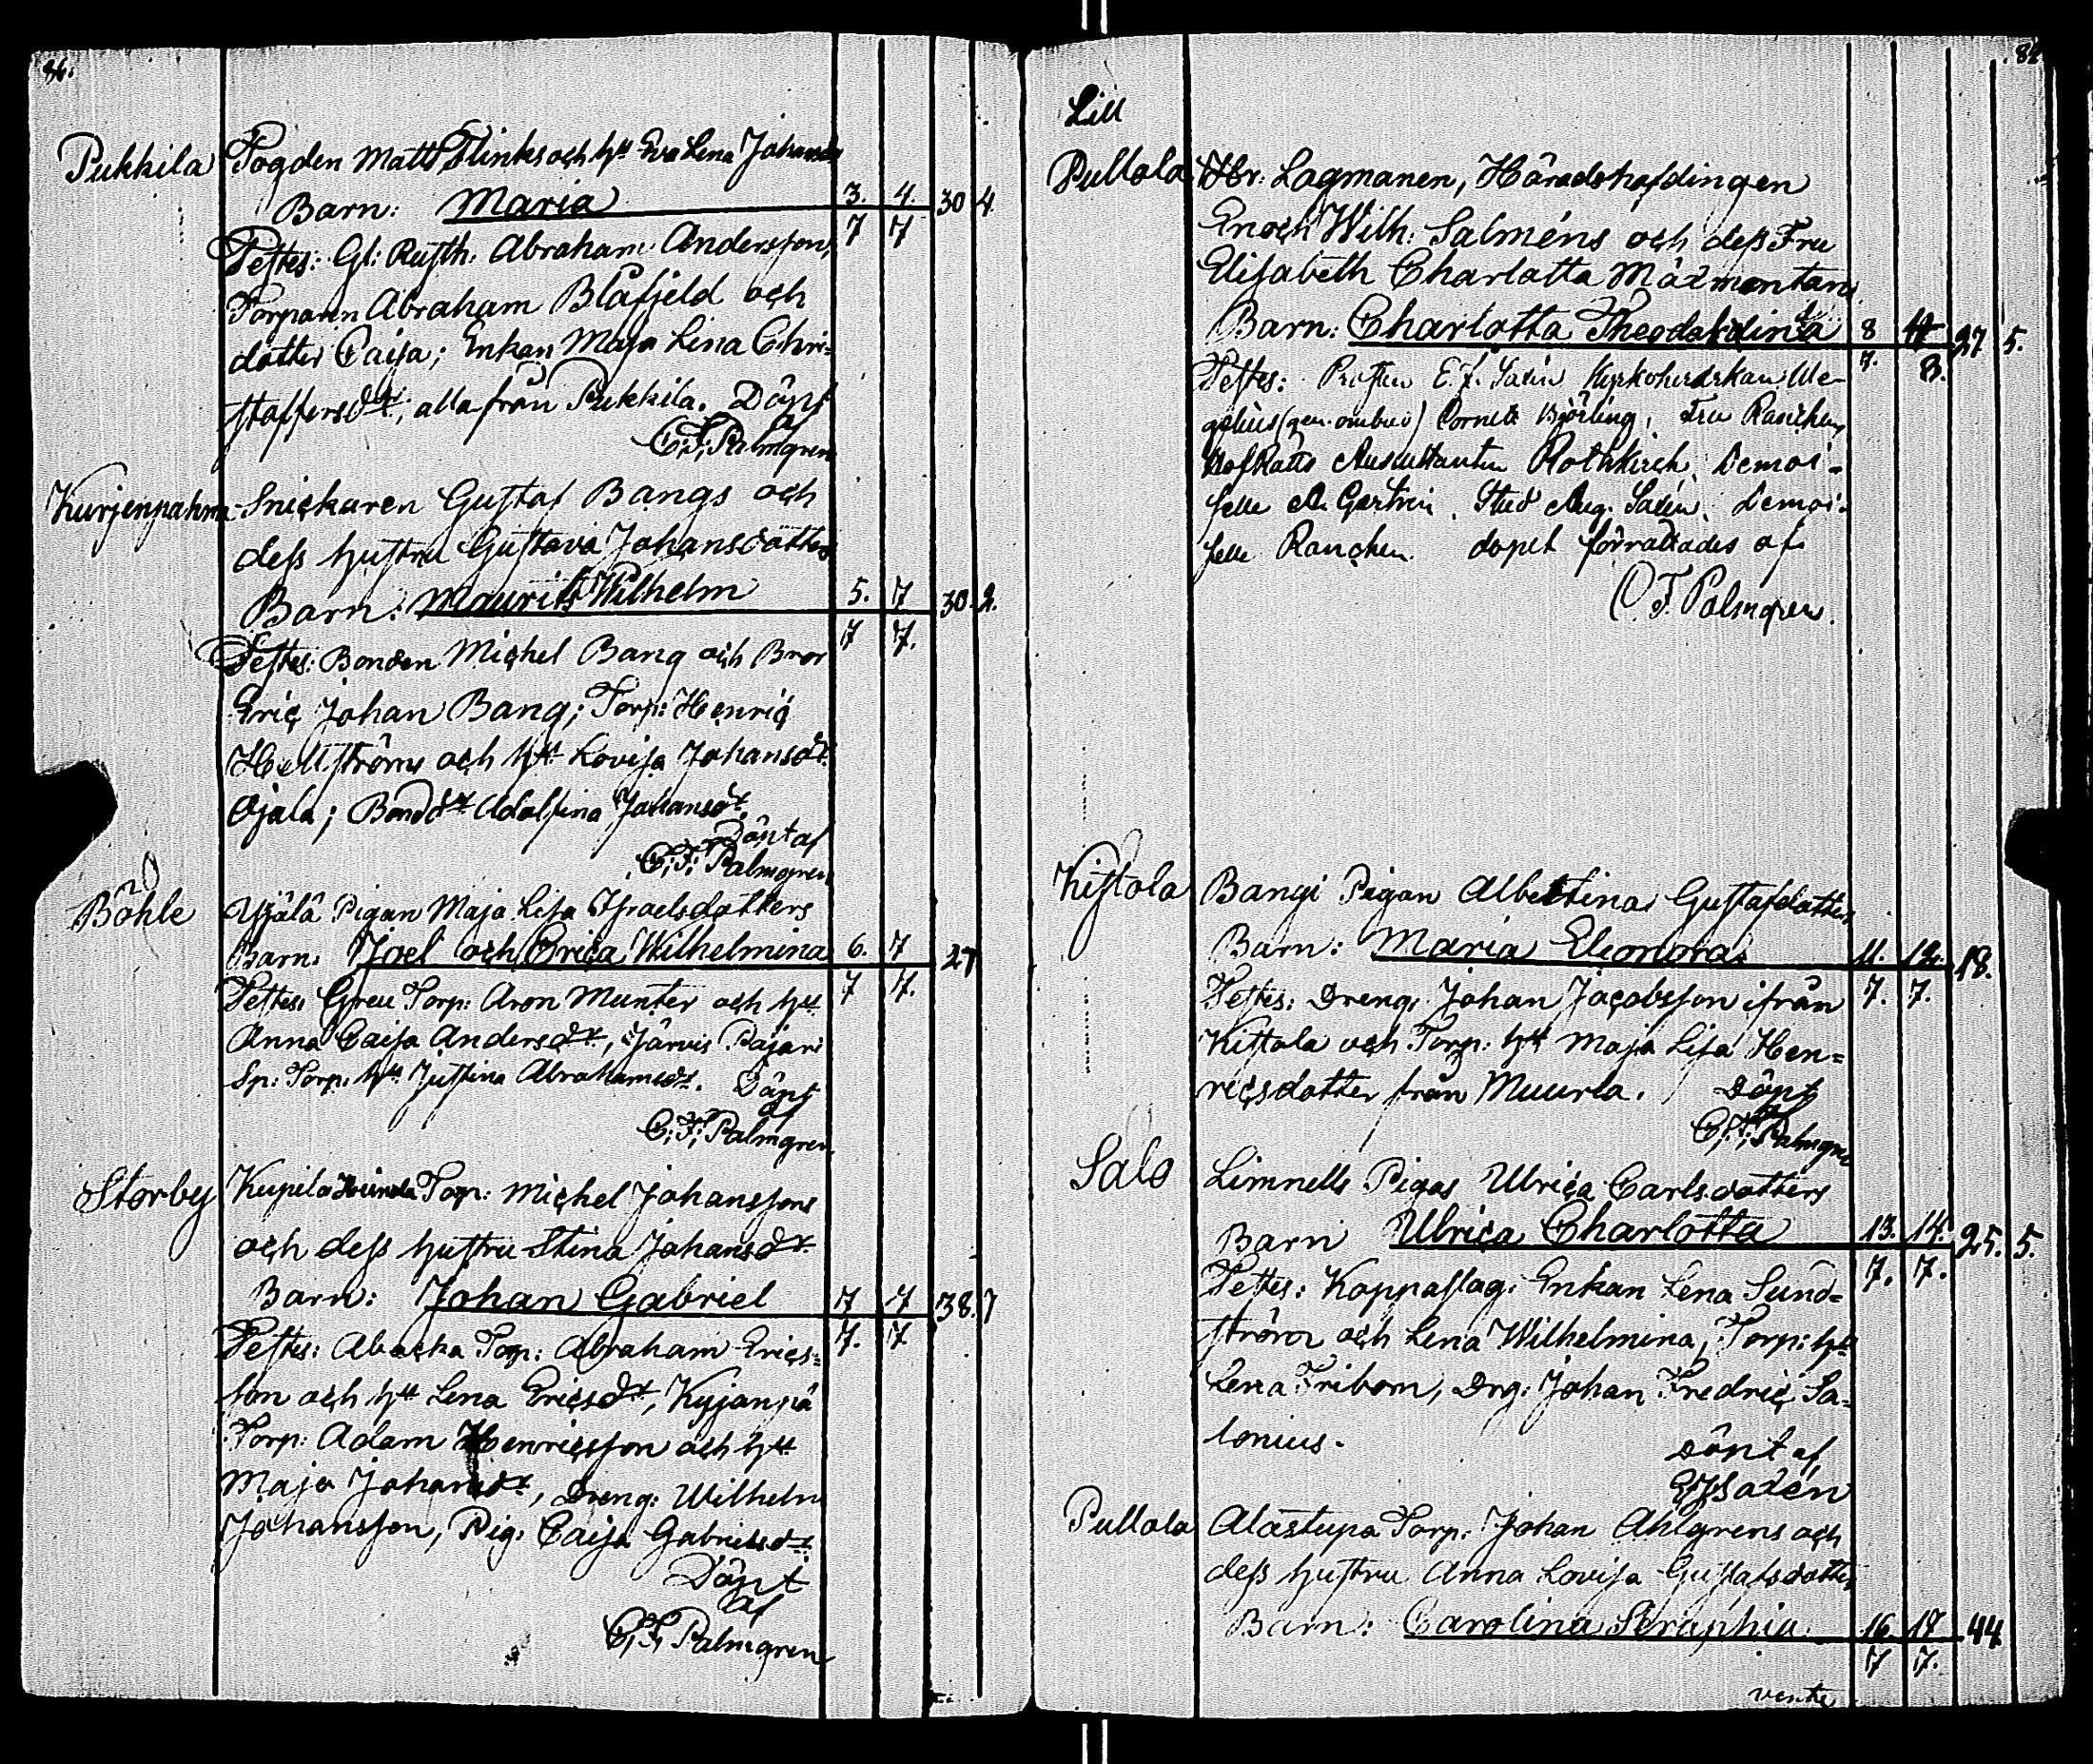 86.
Pukkila Fogden Matts Flinks och h:u Eva Lena Johansdr
Barn: Maria 3. 4. 30 4.
7 7
Testes: Gl: Rusth. Abraham Andersson,
Torparen Abraham Blåfjeld och
dotter Caisa; Enkan Maja Lena Chri=
staffersdr, alla från Pukkila. Döpt
af
C: F; Palmgren
Kurjenpahna Snickaren Gustaf Bangs och
dess hustru Gustava Johansdotters
Barn: Maurits Wilhelm 5. 7 30. 2.
7 7.
Testes: Bonden Michel Bang och Bror
Eric Johan Bang; Torp: Henric
Hellströms och h:u Lovisa Johansdr.
Ojala; Bondd:r Adolfina Johansdr.
Döpt af
C: F: Palmgren
Böhle Yjälä Pigan Maja Lisa Israelsdotters
Barn: Joel och Erica Wilhelmina 6. 7 27
7 7.
Testes: Torp: Aron Munter och h:u
Anna Caisa Andersdr, Järvis Pajari
Sp: Torp: h:u Justina Abrahamsdr. Döpt
af
C: F; Palmgren
Storby Kupila Torp: Michel Johanssons
och dess hustru Stina Johansdr.
Barn: Johan Gabriel 7 7 38. 7
7. 7.
Testes: Abacka Torp: Abraham Erics=
son och h:u Lena Ericsdr, Kyjanpä
Torp: Adam Henricsson och h:u
Maja Johansdr, Dreng: Wilhelm
Johansson, Pig: Caisa Gabrielsdr.
Döpt
af
C; F; Palmgren
Lill
Pullola Hr: Lagmanen, Häradshöfdingen
Enoch Wilh: Salméns och dess Fru
Elisabeth Charlotta Mäzmontans
Barn: Charlotta 8 27 5.
7. 8.
Testes: E. J. Saxén
Cornett Björling, Fru
HofRätts Auscultanten Rothkirch, Demoi-
selle A. Stud Aug. Saxén, Demoi-
selle dopet förrättades af
C. F. Palmgren.
Kistola Bangi Pigan Albertina Gustafsdotters
Barn: Maria Eleonora 11. 12. 18.
7. 7.
Testes: Dreng: Johan Jacobsson ifrån
Kistola och Torp: h:u Maja Lisa Hen=
ricsdotter från Muurla. Döpt
af
C; F; Palmgren
Salo Limnells Pigas Ulrica Carlsdotters
Barn Ulrica Charlotta 13. 14. 25. 5.
7. 7.
Testes: Kappaslag: Enkan Lena Sund=
ström och Lena Wilhelmina, Torp: h:u
Lena Tribom, Drg: Johan Fredric Sa=
lonius. Döpt af
EJSaxén
Pullola Alastupa Torp: Johan Ahlgrens och
dess hustru Anna Lovisa Gustafsdotters
Barn: Carolina Seraphia. 16. 17 44
7 7.